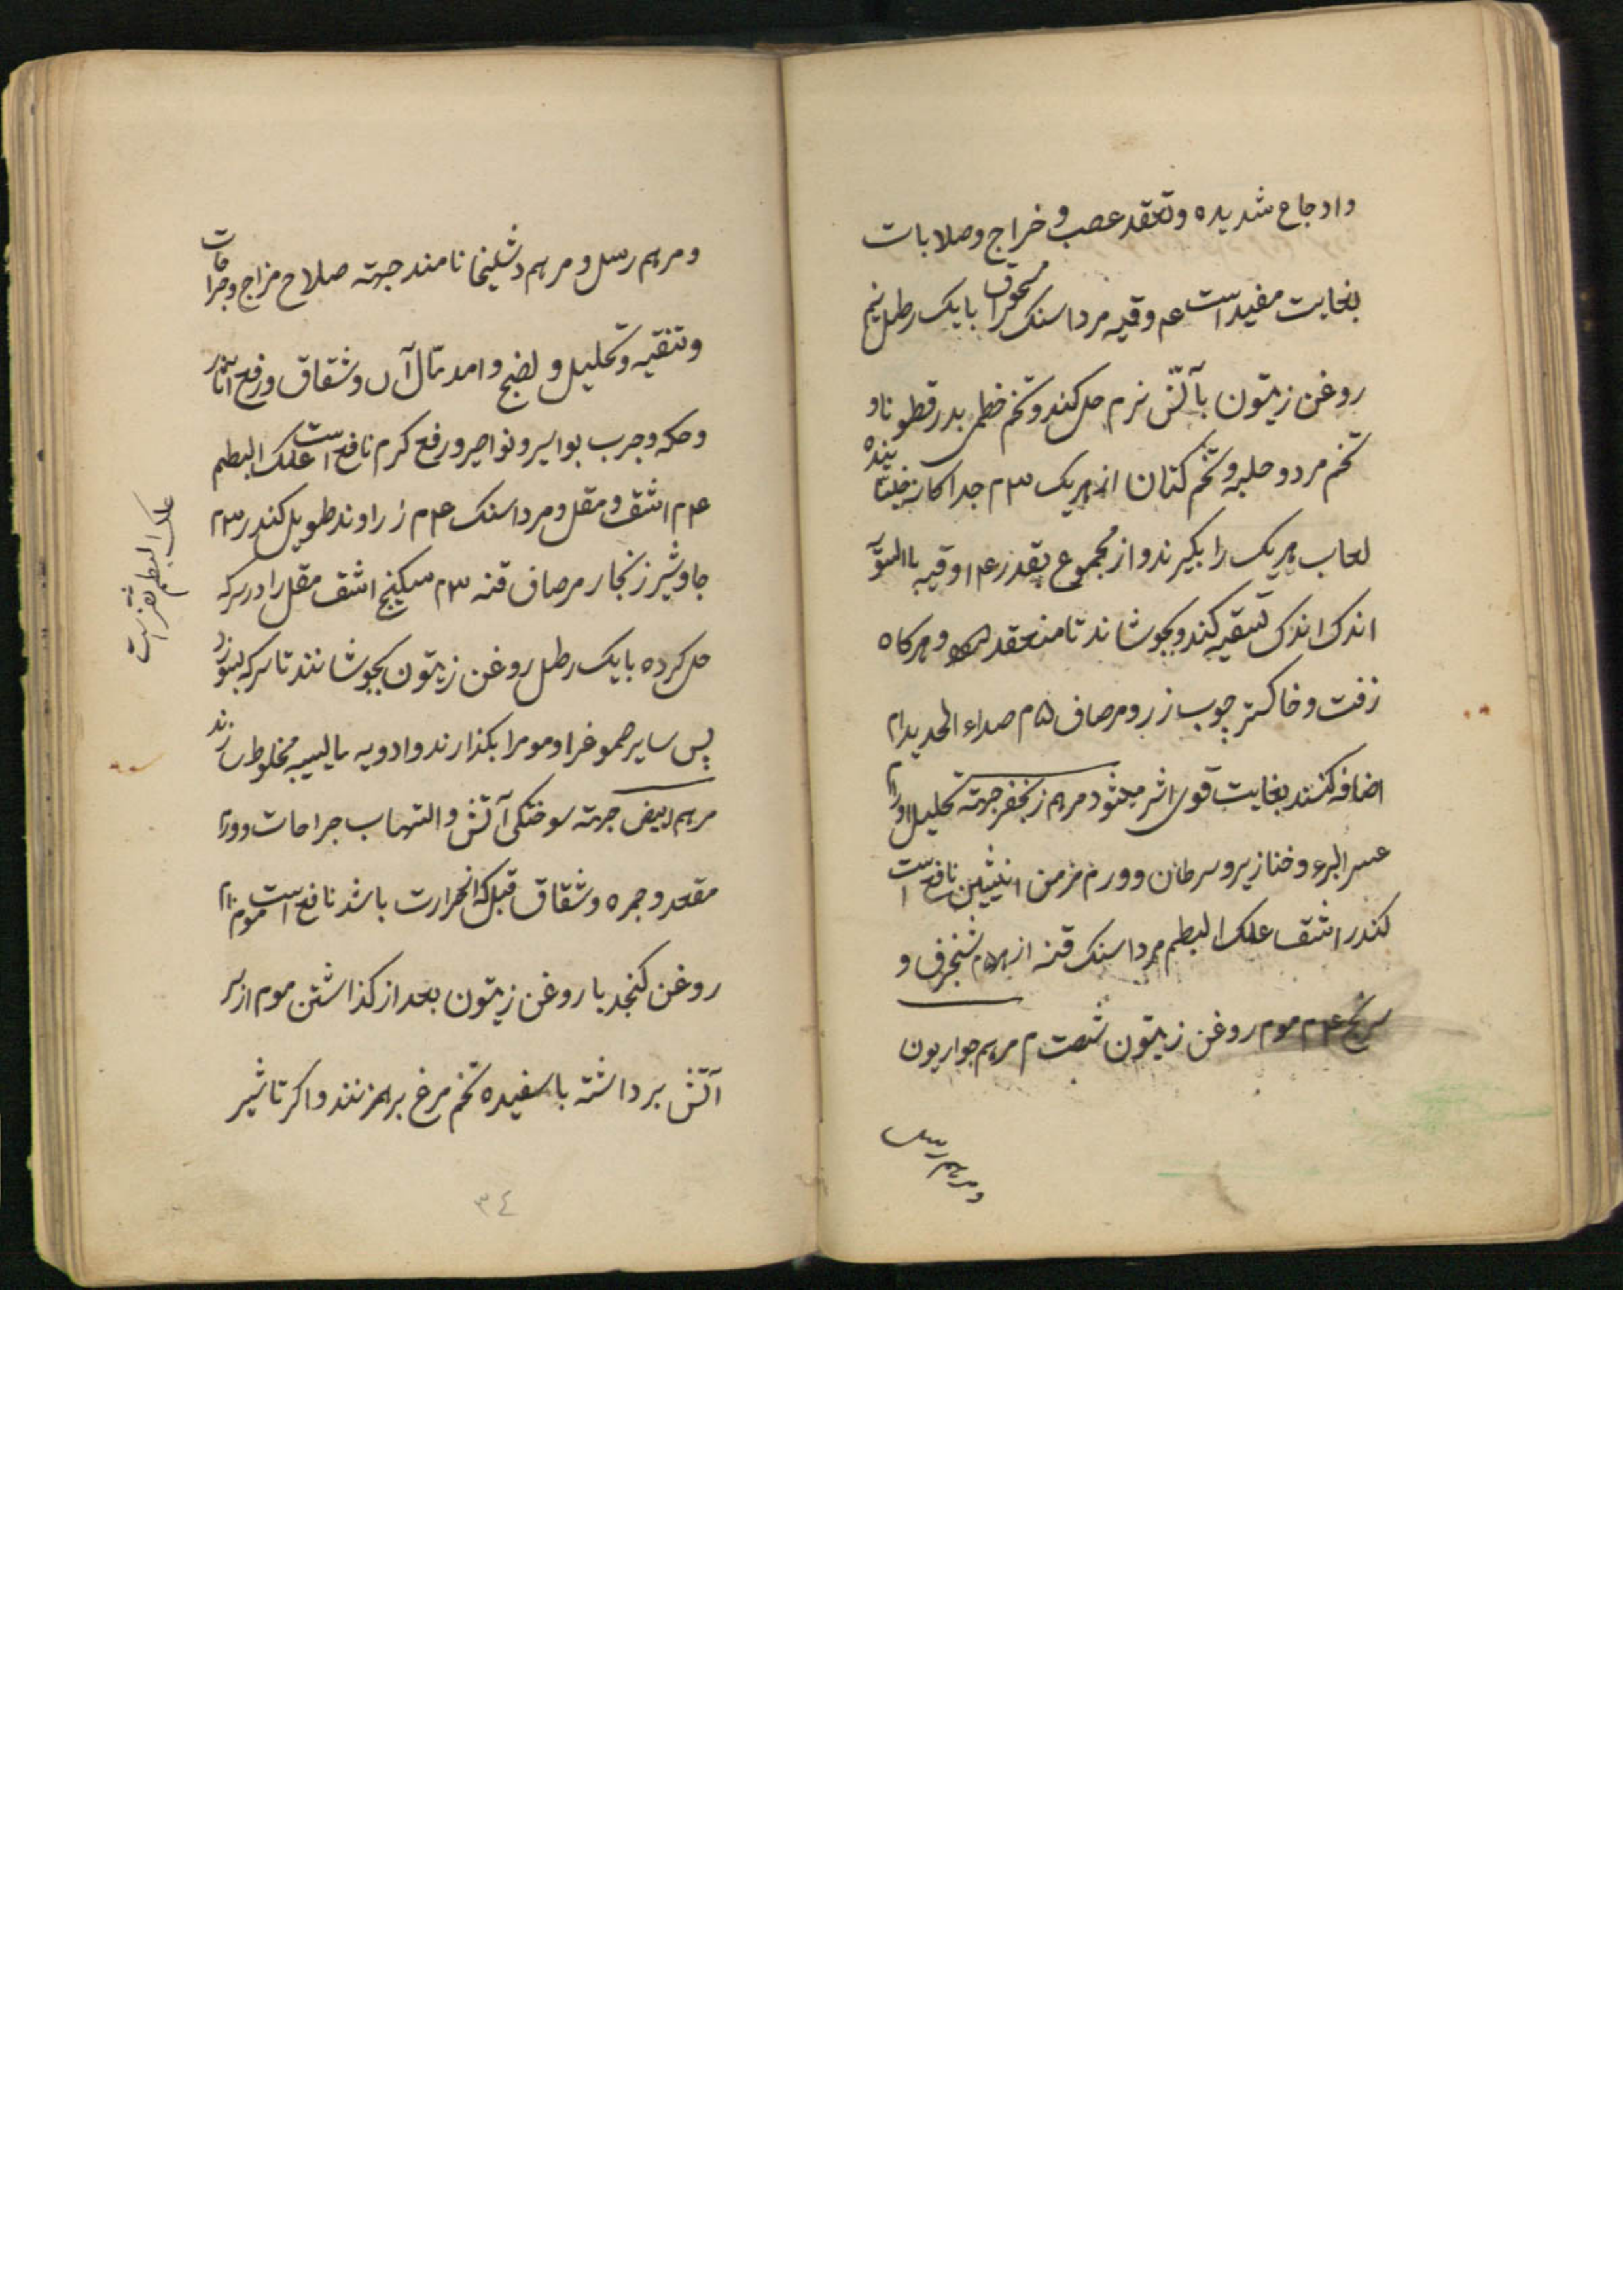 واوجاع شدیده وتعقد عصب و خراج وصلابات
بغایت مفیداست عم وقیه مرداسنک محرق با یک رطل نیم
روغن زیتون بآتش نرم حل کند وتخم خطمی بدرقطونا و
تخم مرد و حلبه وتخم کتان از هریک ۳م جداکانه خیسانیده
لعاب هریک را بکیرند واز مجموع بقدر عم اوقیه باالسوّیّه
اندک اندک تسقیه کند وبجوشاند تا منعقد شود وهرکاه
زفت وخاکستر چوب زر ومرصاف ۵م صداء الحدید ۱م
اضافه کنند بغایت قوی اثر میشود مرهم زنجفر جهته تحلیل اورام
عسر البرء وخنازیر وسرطان وورم مزمن انیثیین نافع است
کندر اشق علک البطم مرداسنک قنه از هر ۵م شنجرف و
سرنج عم م موم روغن زیتون شصت م مرهم حواریون
ومرهم رسل
ومرهم رسل ومرهم دشلیخا نامند جهته صلاح مزاج وجراحات
وتنقیه وتحلیل و لضج واندمال آن وشقاق ورفع آثار
وحکه وجرب بواسیر ونواصیر ورفع کرم نافع است علک البطم
عم م اشق ومقل ومرداسنک عم م زراوند طویل کندر ۳م
جاوشیر زنجار مرصاف قنه ۳م سکبنج اشق مقل را درسرکه
حل کرده با یک رطل روغن زیتون بجوشانند تا سرکه بسوزد
پس سایر صموغ را وموم را بکذارند وادویه یابسه مخلوط سازند
مرهم ابیض جهته سوختکی آتش والتهاب جراحات وورم
مقعد وجمره وشقاق قبل که از حرارت باشد نافع است موم ۱۰م
روغن کنجد یا روغن زیتون بعد از کذاشتن موم از سر
آتش برداشته با سفیده تخم مرغ برهم زنند واکر تاشیر
علک البطم سقز است
٣٤